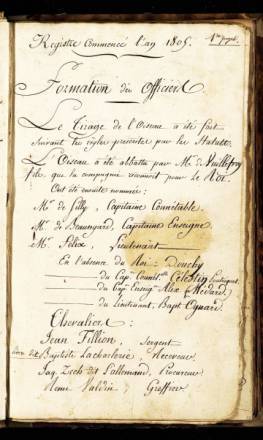 Registre Commencé l'an 1805.
Formation des Officiers
Le Tirage de l'Oiseau a été fait
suivant les règles prescrites par les Statuts.
L'Oiseau a été abbatu par Mr. de
fils que la compagnie reconnoit pour le Roi.
Ont été ensuite nommés:
Mr. de Lilly, Capitaine Connétable.
Mr. de Beauregard, Capitaine Enseigne.
Mr. Félix, Lieutenant
En l'absence du Roi: Douchy
du Cap. Connét. Célestin
du Cap. Enseig. Alex. Médard.
du Lieutenant, Bapt.
Chevaliers:
Jean Fillion, Sergent
Baptiste Receveur
Jaq. dit Lallemand, Procureur
Remi Valdin, Greffier